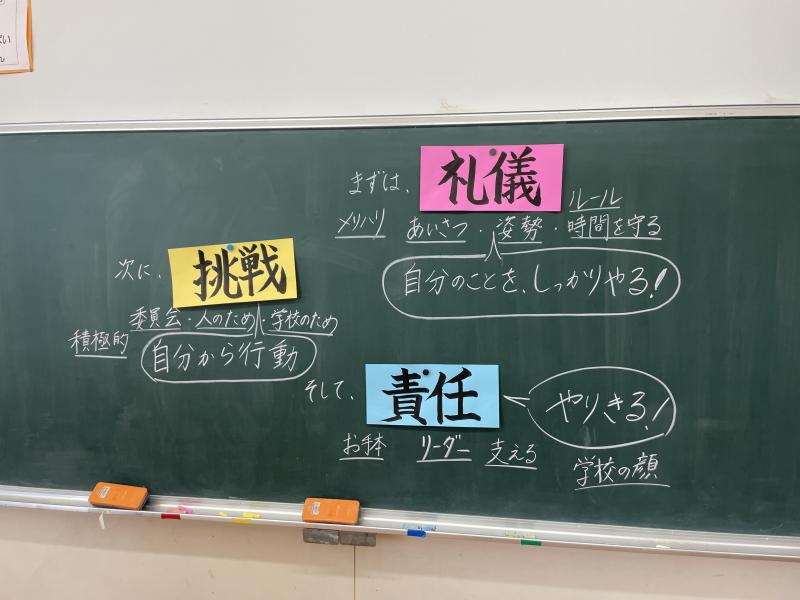 まずは、
礼儀
ルール
メリハリ あいさつ・姿勢・時間を守る
自分のことを、しっかりやる!
次に、
挑戦
委員会・人のため・学校のため
積極的
自分から行動
そして、
責任
やりきる!
お手本 リーダー 支える
学校の顔